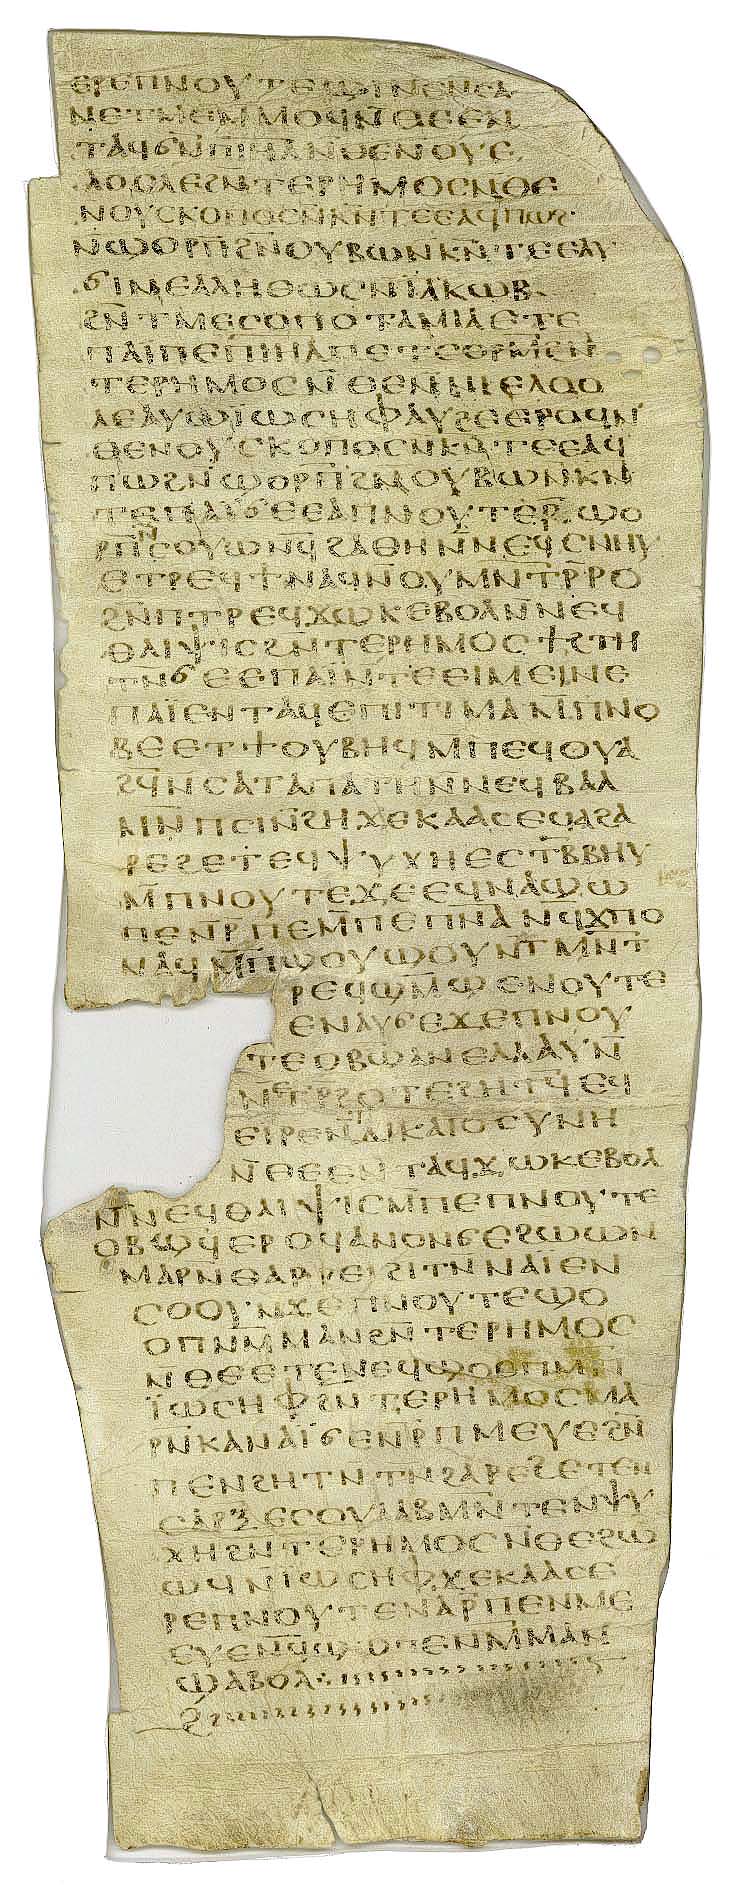 ⲉⲣⲉⲡⲛⲟⲩⲧⲉϣⲓⲛⲉⲛⲥⲁ
ⲛⲉⲧⲙⲉⲛ ⲙⲟϥⲛ̄ⲑⲉⲉⲛ
ⲧⲁϥϭⲛ̄ⲡⲓⲏⲗ ⲛ̄ⲑⲉⲛⲟⲩⲥ
ⲗⲟⲟⲗⲉϩⲛ̄ⲧⲉⲣⲏⲙⲟⲥⲛ̄ⲑⲉ
ⲛⲟⲩⲥⲕⲟⲡⲟⲥⲛ̄ⲕⲛ̄ⲧⲉⲉⲁϥⲡⲱϩ
ⲛ̄ϣⲟⲣⲡ̄ϩⲛ̄ⲟⲩⲃⲱⲛⲕⲛ̄ⲧⲉⲉⲁⲩ
ϭⲓⲛⲉⲁⲗⲏⲑⲱⲥⲛ̄ⲓ̈ⲁⲕⲱⲃ
ϩⲛ̄ⲧⲙⲉⲥⲟⲡⲟⲧⲁⲙⲓⲁⲉⲧⲉ
ⲡⲁⲓⲡⲉⲡⲓⲏⲗⲡⲉⲧ
ⲧⲉⲣⲏⲙⲟⲥⲛ̄ ⲑⲉⲛ̄ⲛⲓⲉⲗⲟⲟ
ⲗⲉⲁⲩⲱⲓ̈ⲱⲥⲏⲫⲁⲩϩⲉⲉⲣⲟϥⲛ̄
ⲑⲉⲛⲟⲩⲥⲕⲟⲡⲟⲥⲛ̄ⲕⲛ̄ⲧⲉⲉⲁϥ
ⲡⲱϩⲛ̄ϣⲟⲣⲡ̄ϩⲛ̄ⲟⲩⲃⲱⲛⲕⲛ̄
ⲧⲉⲡⲁⲓ̈ϭⲉⲉⲁⲡⲛⲟⲩⲧⲉⲣ̄ϣⲟ
ⲣⲡ̄ⲛ̄ⲥⲟⲩⲱⲛϥ̄ϩⲁⲑⲏⲛ̄ⲛⲉϥⲥⲛⲏⲩ
ⲉⲧⲣⲉϥϯⲛⲁϥⲛ̄ⲟⲩⲙⲛ̄ⲧⲣ̄ⲣⲟ
ϩⲙ̄ⲡⲧⲣⲉϥϫⲱⲕⲉⲃⲟⲗⲛ̄ⲛⲉϥ
ⲑⲗⲓⲯⲓⲥϩⲛ̄ⲧⲉⲣⲏⲙⲟⲥϯϩⲧⲏ
ⲧⲛ̄ϭⲉⲉⲡⲁⲓ̈ⲛ̄ⲧⲉⲉⲓⲙⲉⲓⲛⲉ
ⲡⲁⲓ̈ⲉⲛⲧⲁϥⲉⲡⲓⲧⲓⲙⲁⲙ̄ⲡⲛⲟ
ⲃⲉⲉⲧϯⲟⲩⲃⲏϥⲙⲡⲉϥⲟⲩⲁ
ϩϥ̄ⲛ̄ⲥⲁⲧⲁⲡⲁⲧⲏⲛ̄ⲛⲉϥⲃⲁⲗ
ⲙⲛ̄ⲡⲥⲓⲛ̄ϩⲏϫⲉⲕⲁⲁⲥⲉϥⲁϩⲁ
ⲣⲉϩⲉⲧⲉϥⲯⲩⲭⲏⲉⲥⲧⲃ̄ⲃⲏⲩ
ⲙ̄ⲡⲛⲟⲩⲧⲉϫⲉⲉϥⲛⲁϣⲱ
ⲡⲉⲛ̄ⲣ̄ⲡⲉⲙ̄ⲡⲉⲡⲛ̄ⲁ̄ⲛϥ̄ϫⲡⲟ
ⲛⲁϥⲙ̄ⲡϣⲟⲩϣⲟⲩⲛ̄ⲧⲙⲛ̄ⲧ
ⲣⲉϥϣⲙ̄ϣⲉⲛⲟⲩⲧⲉ
ⲉⲛⲁⲩϭⲉϫⲉⲡⲛⲟⲩ
ⲧⲉⲟⲃϣⲁⲛⲉⲗⲁⲁⲩⲛ̄
ⲛⲉⲧⲣ̄ϩⲟⲧⲉϩⲏⲧϥ̄ⲉϥ
ⲉⲓⲣⲉⲛ̄ⲧⲇⲓⲕⲁⲓⲟⲥⲩⲛⲏ
ⲛ̄ⲑⲉⲉⲛⲧⲁϥϫⲱⲕⲉⲃⲟⲗ
ⲛ̄ⲛⲉϥⲑⲗⲓⲯⲓⲥⲙ̄ⲡⲉⲡⲛⲟⲩⲧⲉ
ⲟⲃϣϥ̄ⲉⲣⲟϥⲁⲛⲟⲛϭⲉϩⲱⲱⲛ
ⲙⲁⲣⲛ̄ⲑⲁⲣⲣⲉⲓϩⲓⲧⲛ̄ⲛⲁⲓ̈ⲉⲛ
ⲥⲟⲟⲩⲛϫⲉⲡⲛⲟⲩⲧⲉϣⲟ
ⲟⲡⲛⲙ̄ⲙⲁⲛϩⲛ̄ⲧⲉⲣⲏⲙⲟⲥ
ⲛ̄ⲑⲉⲉⲧⲉⲛⲉϥϣⲟⲟⲡⲙⲛ̄
ⲓ̈ⲱⲥⲏⲫϩⲛ̄ⲧⲉⲣⲏⲙⲟⲥⲙⲁ
ⲣⲛ̄ⲕⲁⲛⲁⲓ̈ϭⲉⲛ̄ⲣ̄ⲡⲙⲉⲩⲉϩⲙ̄
ⲡⲉⲛϩⲏⲧⲛ̄ⲧⲛ̄ϩⲁⲣⲉϩⲉⲧⲉⲛ
ⲥⲁⲣⲝ̄ⲉⲥⲟⲩⲁⲁⲃⲙⲛ̄ⲧⲉⲛⲯⲩ
ⲭⲏϩⲛ̄ⲧⲉⲣⲏⲙⲟⲥⲛ̄ⲑⲉϩⲱ
ⲱϥⲛ̄ⲓ̈ⲱⲥⲏⲫϫⲉⲕⲁⲁⲥⲉ
ⲣⲉⲡⲛⲟⲩⲧⲉⲛⲁⲣ̄ⲡⲉⲛⲙⲉ
ⲉⲩⲉⲛϥ̄ϣⲱⲡⲉⲛⲙ̄ⲙⲁⲛ
ϣⲁⲃⲟⲗ